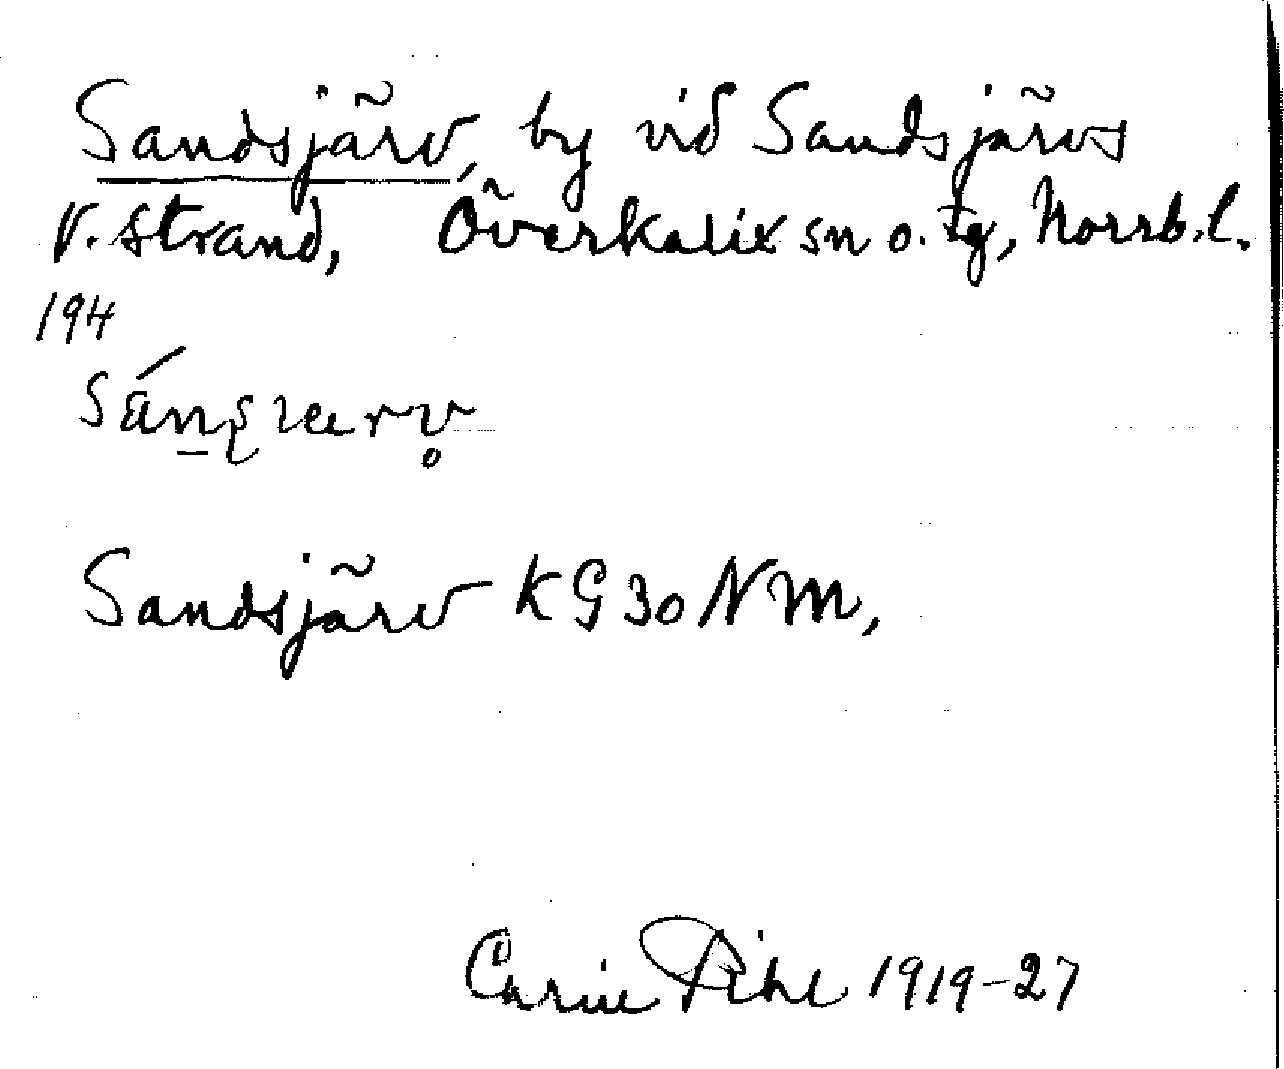 Sandsjärv, by vid Sandsjärvs
V. strand, Överkalix sn o. tg, Norrb.l.
194
Sandsjärv KG 30 NM,
Carin Pihl 1919-27